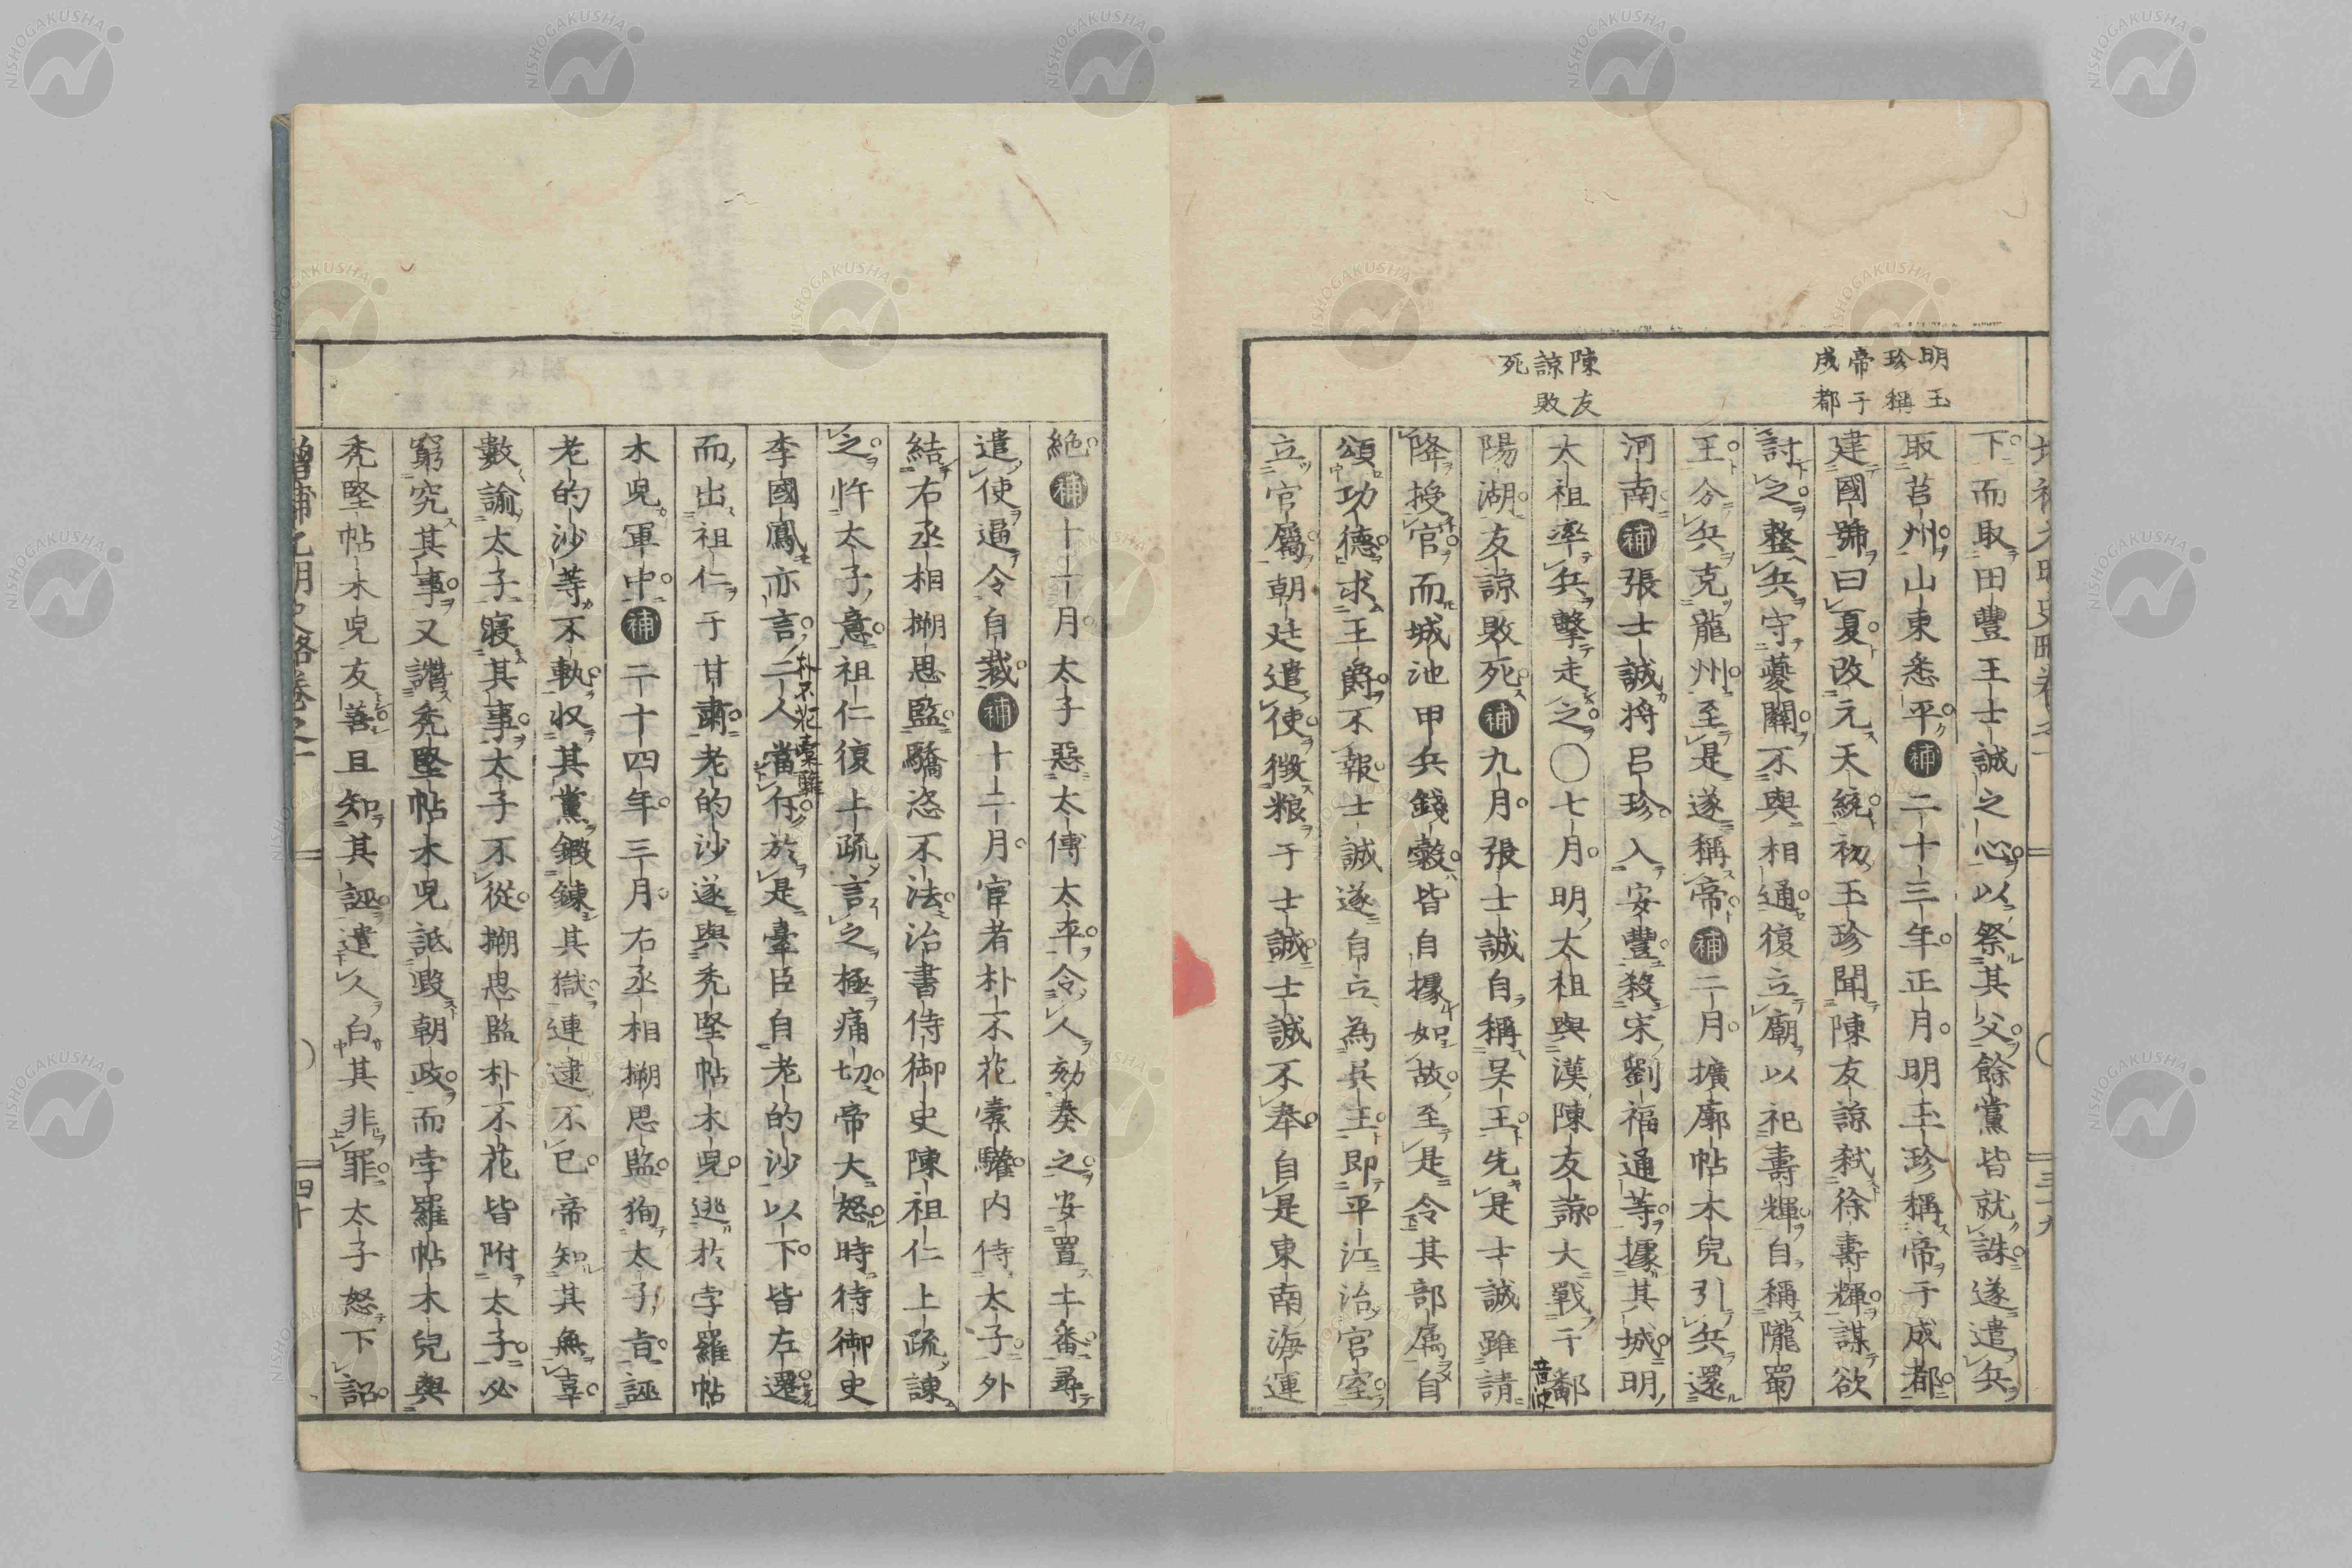 明玉
珍稱
帝于
成都
陳友
諒敗
死
下而取田豐王士誠之心以祭其父餘黨皆就誅遂遣兵
取莒州山東悉平補二十三年正月明玉珍稱帝于成都
建國號曰夏改元天統初玉珍聞陳友諒弒徐壽輝謀欲
討之整兵守夔關不與相通復立廟以祀壽輝自稱隴蜀
王分兵克龍州至是遂稱帝補二月擴廓帖木兒引兵還
河南補張士誠將呂珍入安豐殺宋劉福通等據其城明
太祖率兵擊走之〇七月明太祖與漢陳友諒大戰于鄱
音波
陽湖友諒敗死補九月張士誠自稱吳王先是士誠雖請
降授官而城池甲兵錢穀皆自據如故至是令其部属自
頌功德求王爵不報士誠遂自立為吳王即平江治官室
立官属朝廷遣使徴粮于士誠士誠不奉自是東南海運
絶補十一月太子惡太傅太平令人劾奏之安置土番尋
遣使逼令自裁補十二月宦者朴不花槖驩內侍太子外
結右丞相搠思監驕恣不法治書侍御史陳祖仁上疏諫
之忤太子意祖仁復上疏言之極痛切帝大怒時待御史
李國鳳亦言二人當斥於是臺臣自老的沙以下皆左遷
朴不花槖驩
而出祖仁于甘肅老的沙遂與禿堅帖木兒逃於孛羅帖
木兒軍中補二十四年三月右丞相搠思監狥太子旨誣
老的沙等不軌収其黨鍛鍊其獄連逮不已帝知其無辜
數諭太子寢其事太子不從搠思監朴不花皆附太子必
窮究其事又譖禿堅帖木兒詆毀朝政而孛羅帖木兒與
禿堅帖木兒友善且知其誣遣人白其非罪太子怒下詔
增補元明史略卷之一
四十